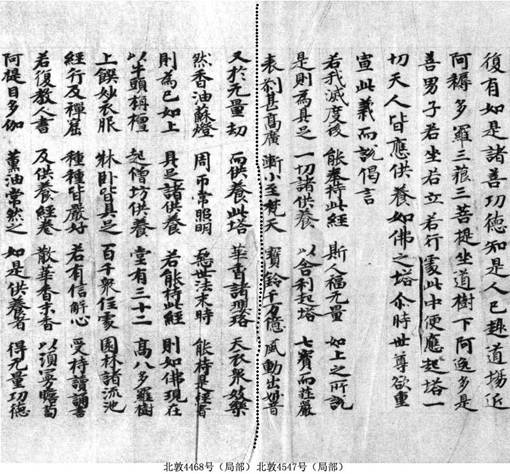 復有如是諸善功德知是人已趣道場近
阿耨多羅三藐三菩提坐道樹下阿逸多是
善男子若坐若立若行處此中便應起塔一
切天人皆應供養如佛之塔尒時世尊欲重
宣此義而說偈言
若我滅度後 能奉持此經 斯人福无量 如上之所說
是則為具足 一切諸供養 以舍利起塔 七寶而莊嚴
表剎甚高廣 漸小至梵天 寶鈴千万億 風動出妙音
又於无量劫 而供養此塔 華香諸瓔珞 天衣眾伎樂
然香油蘇燈 周帀常照明 惡世法末時 能持是經者
則為已如上 具足諸供養 若能持此經 則如佛現在
以牛頭栴檀 起僧坊供養 堂有三十二 高八多羅樹
上饌妙衣服 牀臥皆具足 百千眾住處 園林諸流池
經行及禪窟 種種皆嚴好 若有信解心 受持讀誦書
若復教人書 及供養經卷 散華香末香 以須曼瞻蔔
阿提目多伽 薰油常然之 如是供養者 得无量功德
北敦4468号（局部） 北敦4547号（局部）